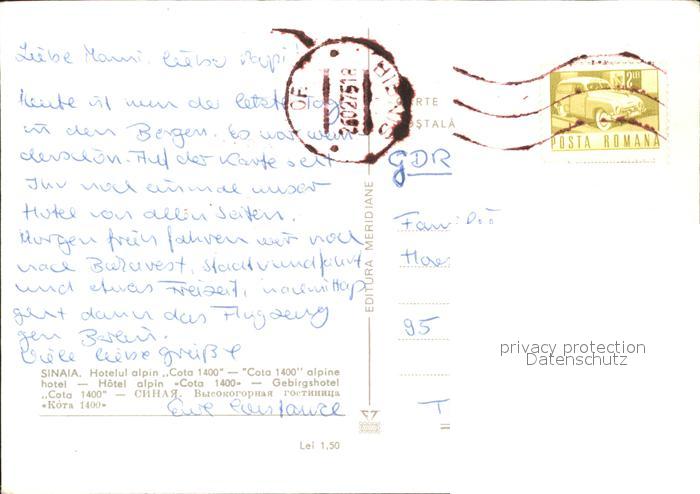 Liebe Mami, lieber Papi!
Heute ist nun der letzte Tag
in den Bergen. Es war wun
derschön. Auf der Karte seht
Ihr noch einmal unser
Hotel von allen Seiten.
Morgen früh fahren wir noch
nach Bukarest, Stadtrundfahrt
und etwas Freizeit, nachmittag
geht dann das Flugzeug
gen Berlin.
Viele liebe Grüße
Eure Constanze
SINAIA. Hotelul alpin „Cota 1400" — "Cota 1400" alpine
hotel — Hôtel alpin «Cota 1400» — Gebirgshotel
„Cota 1400" — СИНАЯ. Высокогорная гостиница
«Кота 1400»
Lei 1,50
EDITURA MERIDIANE
SINAIA
CARTE
POȘTALĂ
2 LEI
POSTA ROMANA
GDR
Fam
95
privacy protection
Datenschutz